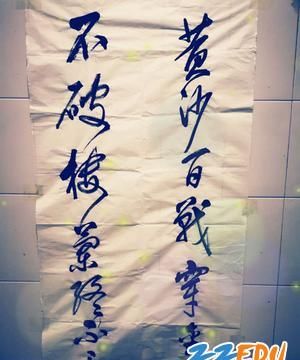 黄沙百戰穿金
不破楼蘭终不
ZZEDU